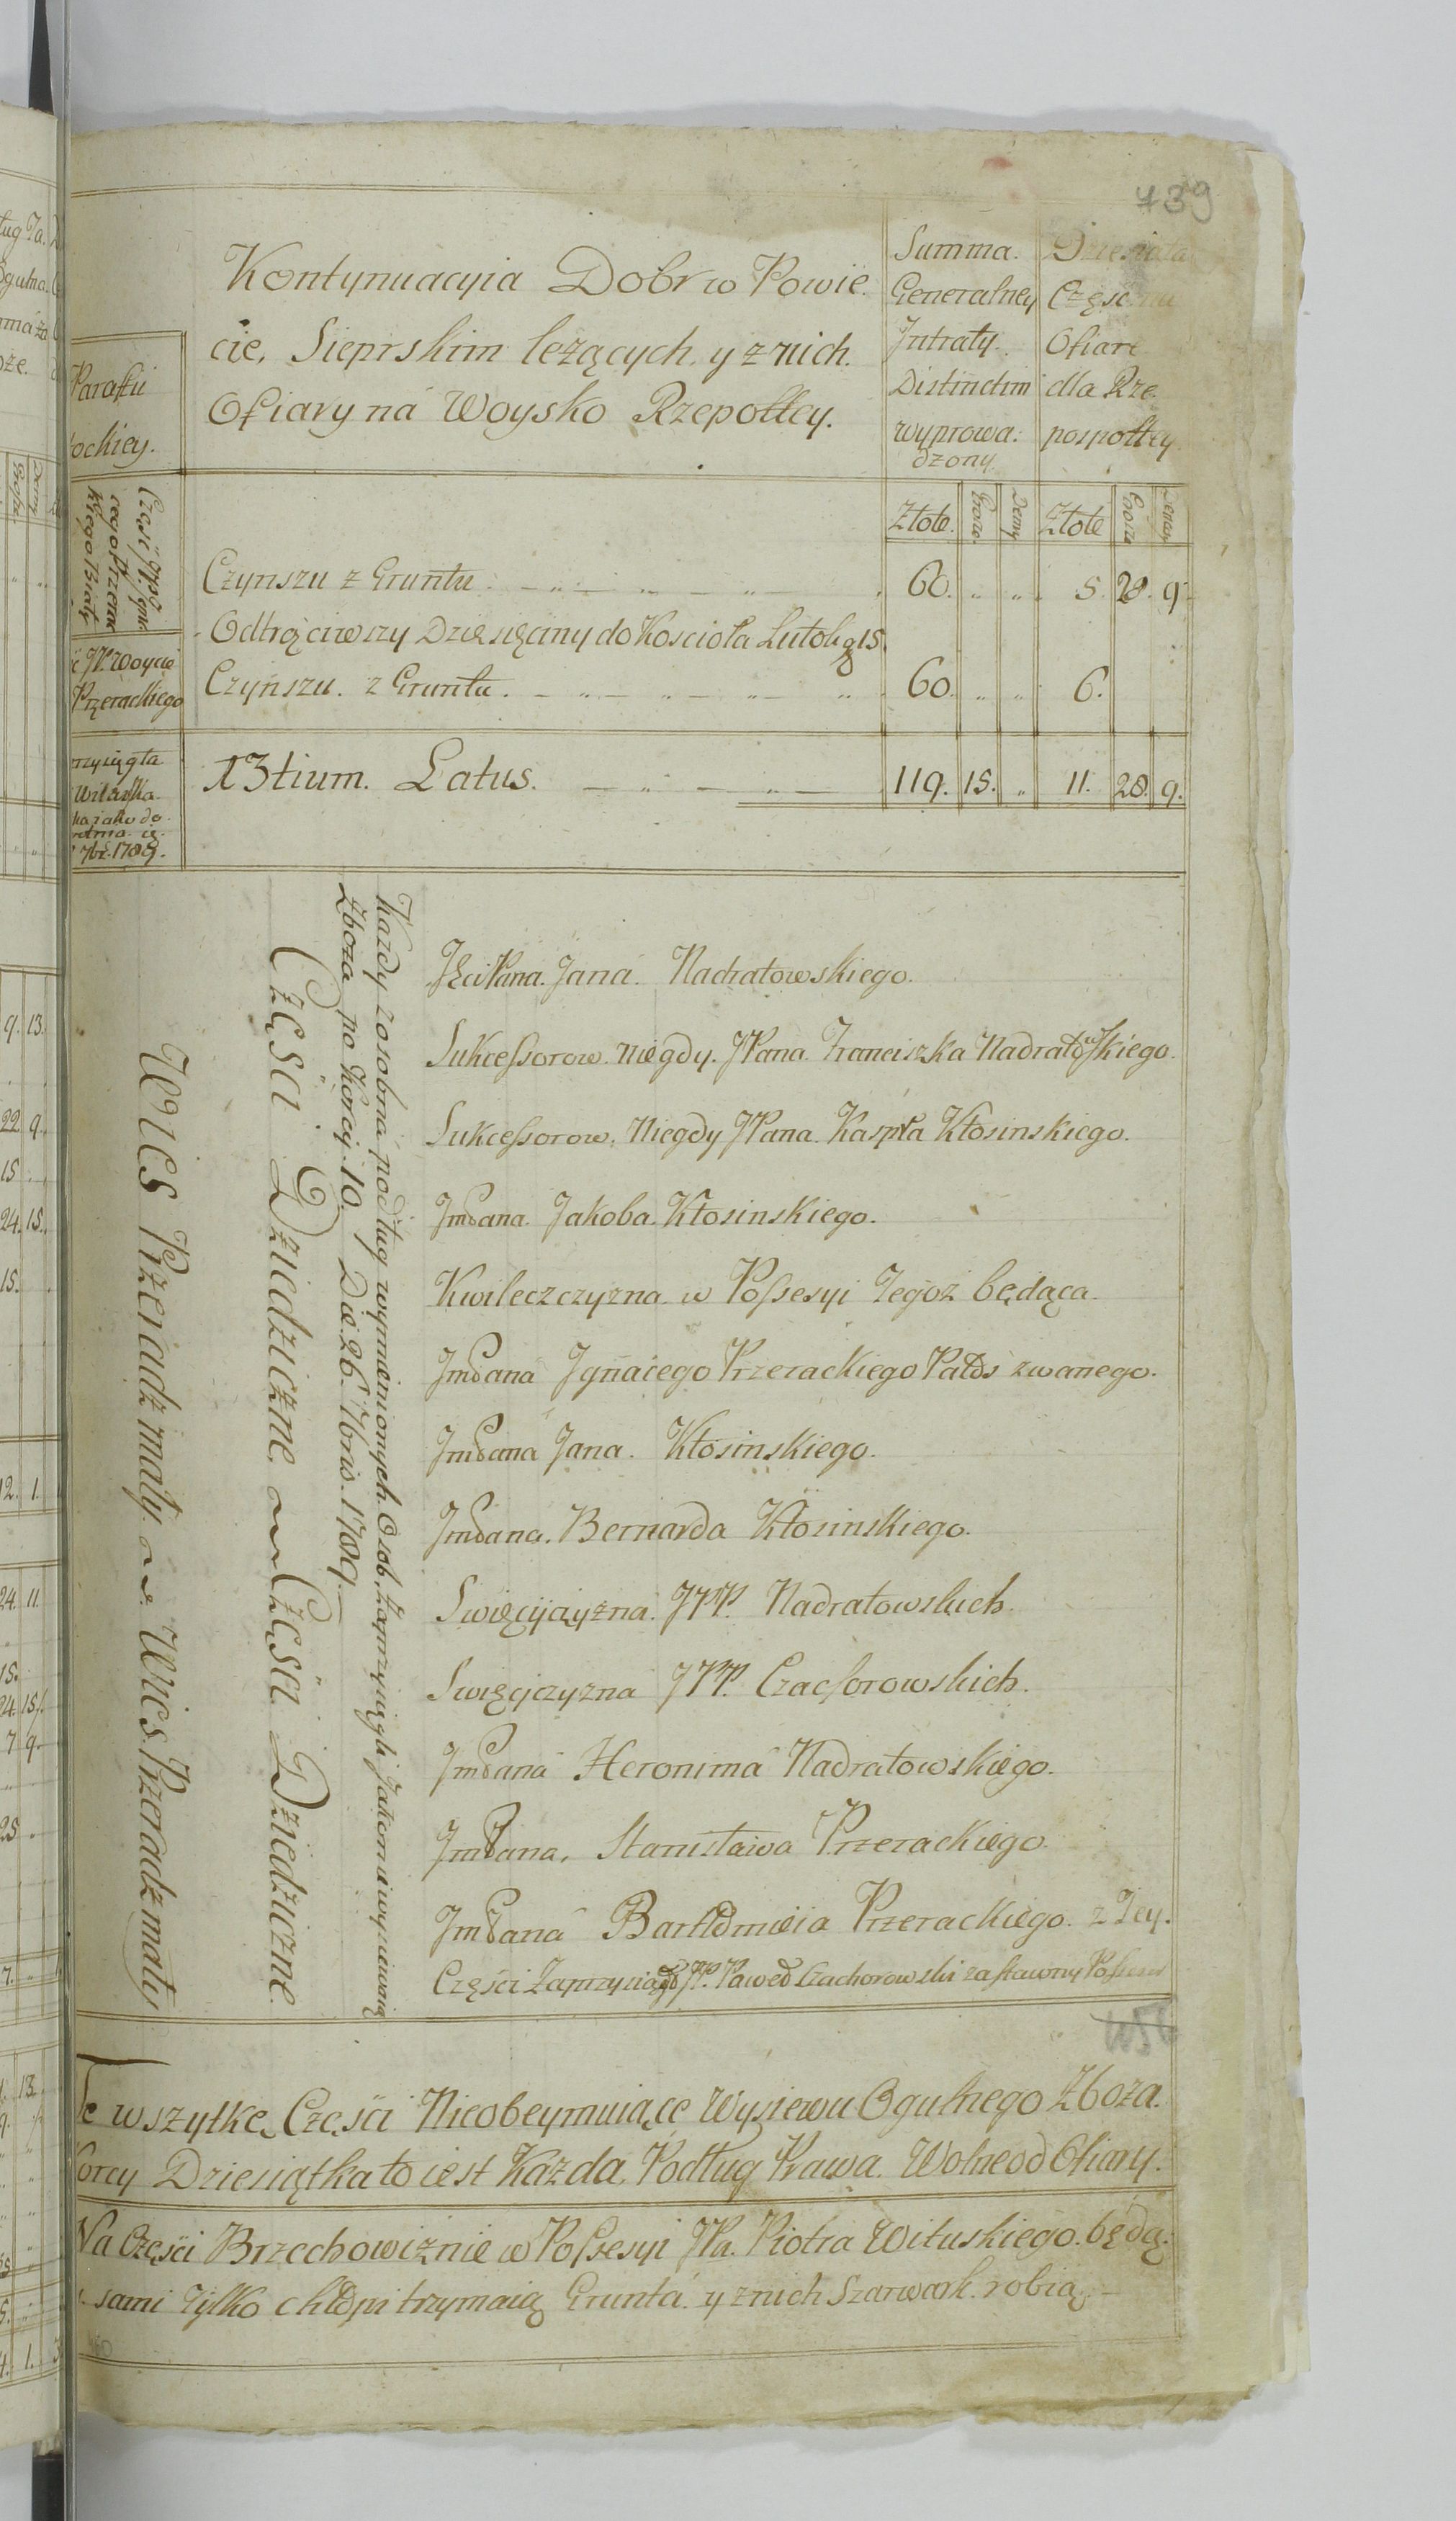 739
Kontynuacyia Dobr w Powie
cie, Sieprskim leżących y z nich.
Ofiary ná Woysko Rzepołtey.
Summa.
Generalney
Intraty.
Distinctim
wyprowa:
dzony.
Dziesiata
Częsc na
Ofiarę
dla Rze.
pospołtey.
Parafii
ockiey.
Złote. Grosz. Deny Złote Grosz Denar
Częsć JPP. Igna
cego Przerac
kiego Biały
Czynszu z Gruntu. 60. " " 5. 28. 9.
Odtrąciwszy Dziesięciny do Koscioła Lutok g 15.
ć JP. Woycie
Przerackiego
Czynszu. z Gruntu. 60. " " 6.
rzysięgła
Wituska.
ka jako do
7br. 1789.
13tium. Latus. 119. 15. " 11. 28. 9.
Wies Przeradz mały
Wies Przeradz mały
Częsci Dziedziczne
Częsci Dziedziczne.
Kazdy zosobna podług wymienionych Osob, Zaprzysiągł Jako niewysiewaią
Zboza po Korcy. 10. Die. 26. 7bris. 1789.
Jści Pana. Jana. Nadratowskiego.
Sukcessorow. niegdy. JPana. Franciszka Nadratowskiego.
Sukcessorow. Niegdy JPana. Kaspra Kłosinskiego.
JmPana. Jakoba. Kłosinskiego.
Kwileczczyzna w Possesyi Tegoż będąca.
JmPana Jgnacego Przerackiego Pałus zwanego.
JmPana Jana. Kłosinskiego.
JmPana. Bernarda Kłosinskiego.
Swięcijczyzna. JPP. Nadratowskich.
Swięcijczyzna JPP. Czachorowskich.
JmPana Heronima Nadratowskiego.
JmPana. Stanisława Przerackiego
JmPana Bartłomieia Przerackiego. z Tey.
Częsci Zaprzysiągł JP. Paweł Czachorowski zastawny Possesor
Te wszytke Częsci Nieobeymuiące Wysiewu Ogulnego Zboza.
Korcy Dziesiątka to iest Kazda, Podług Prawa. Wolne od Ofiary.
Na Częsci Brzechowiznie w Possesyi JPa. Piotra Wituskiego. będą:
sami Tylko chłopi trzymaią Grunta. y znich Szarwark. robią.